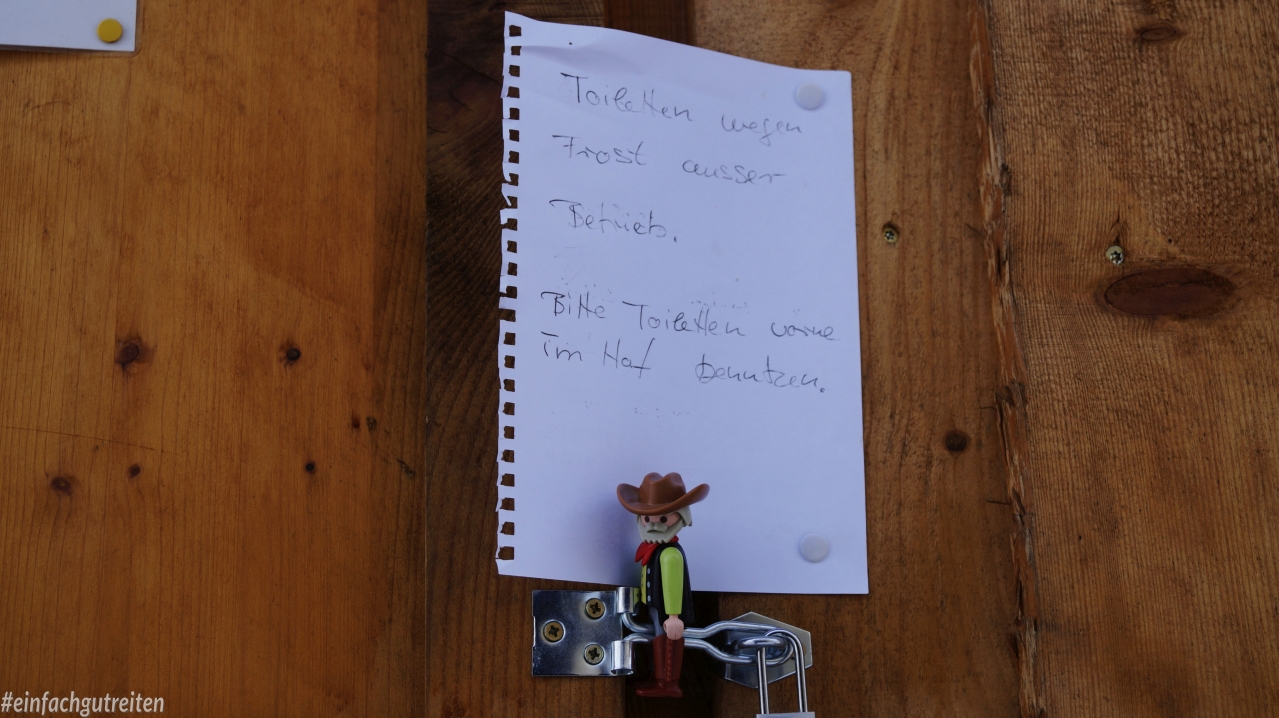 Toiletten wegen
Frost ausser
Betrieb.
Bitte Toiletten vorne
im Hof benutzen.
#einfachgutreiten